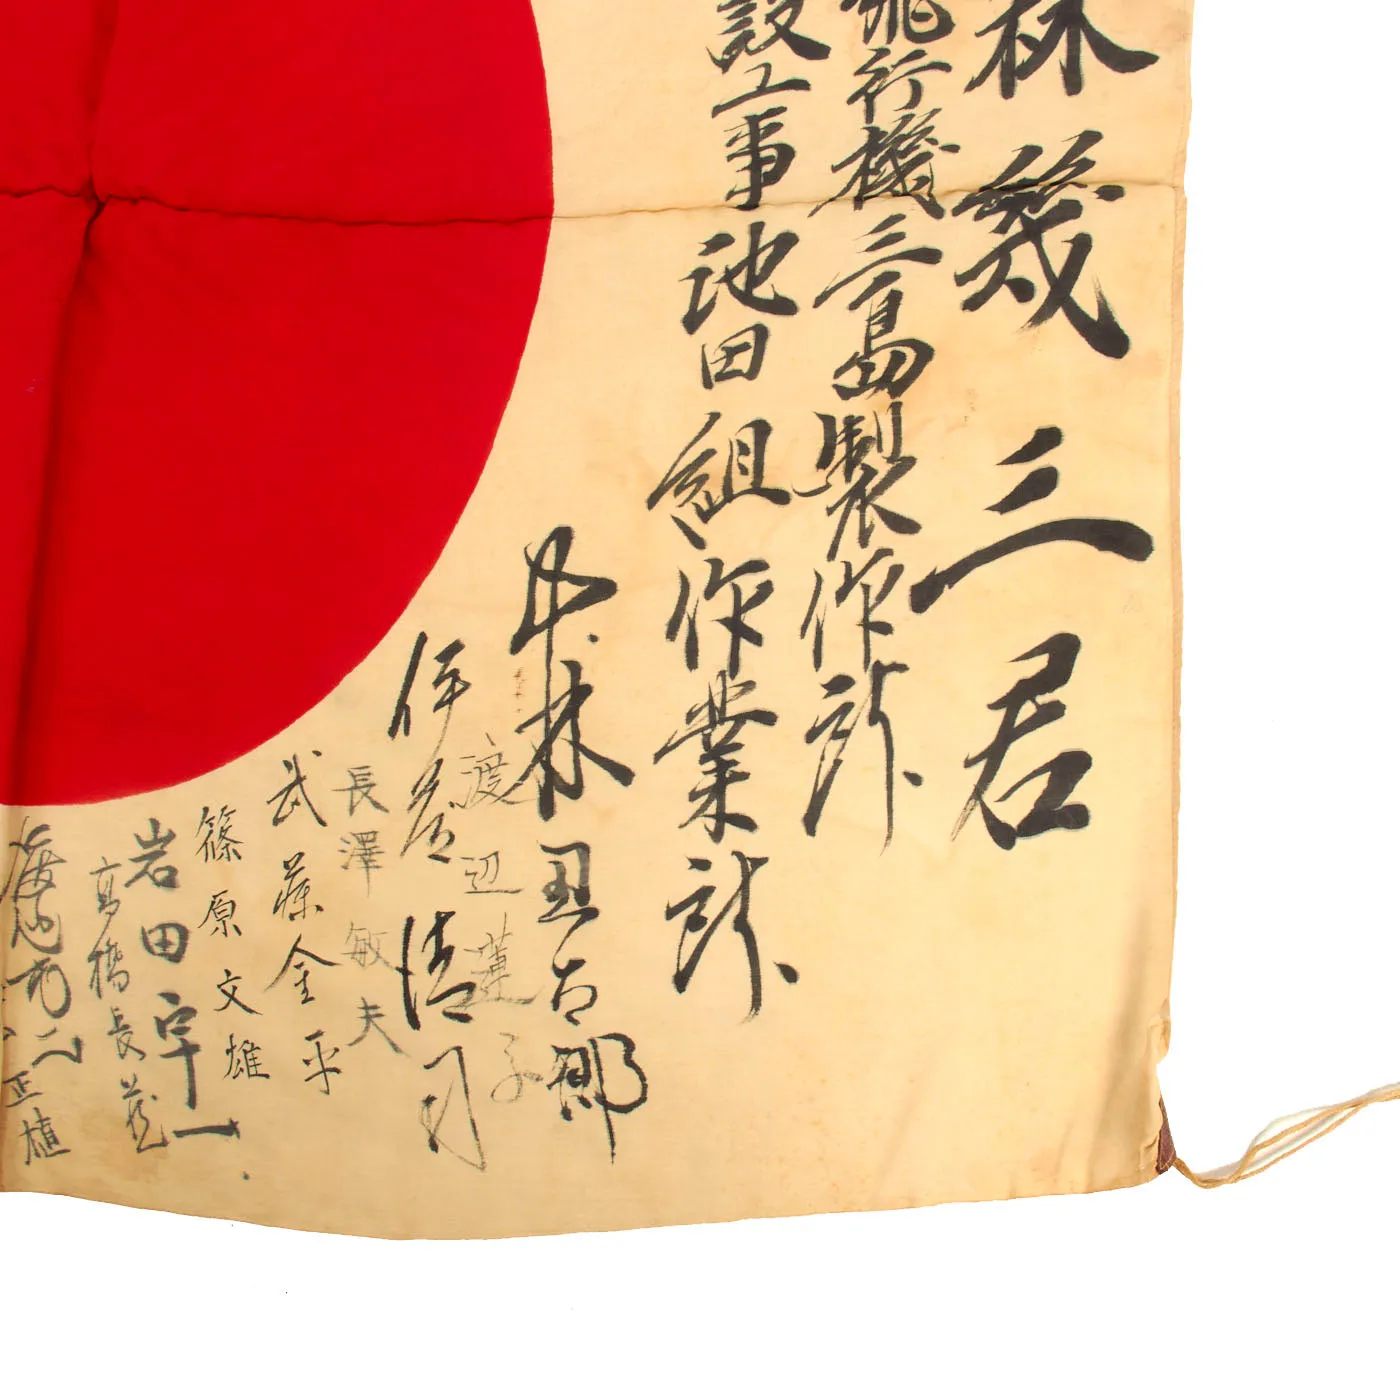 林幾三君
飛行機三島製作所
設工事池田組作業所
小林丑古郎
渡辺蓮子
伊藤清司
長澤敏夫
武藤金平
篠原文雄
岩田宇一
高橋長蔵
正植